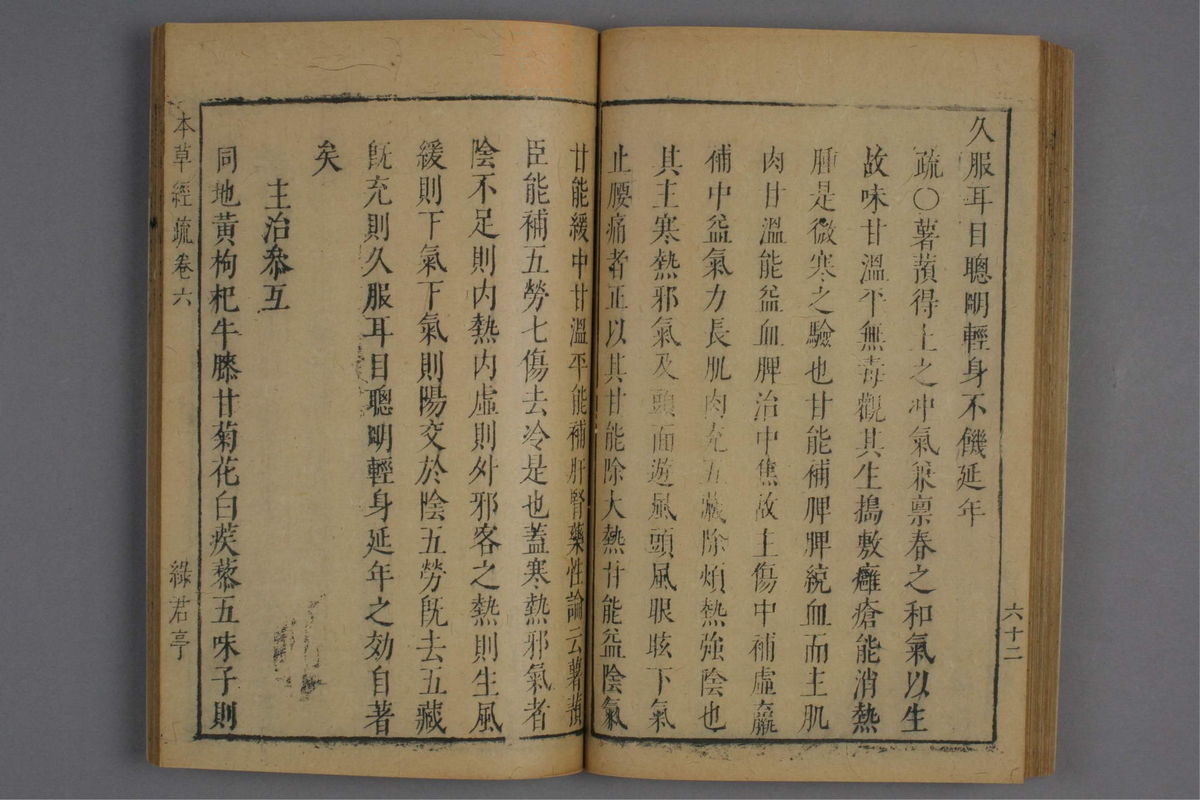 久服耳目聰明輕身不饑延年
疏○薯蕷得土之冲氣兼禀春之和氣以生
故味甘溫平無毒觀其生搗敷癰瘡能消熱
腫是微寒之驗也甘能補脾脾統血而主肌
肉甘溫能益血脾治中焦故主傷中補虛羸
補中益氣力長肌肉充五藏除煩熱強陰也
其主寒熱邪氣及頭面遊風頭風眼眩下氣
止腰痛者正以其甘能除大熱甘能益陰氣
甘能緩中甘溫平能補肝腎藥性論云薯蕷
臣能補五勞七傷去冷是也蓋寒熱邪氣者
陰不足則内熱内虛則外邪客之熱則生風
緩則下氣下氣則陽交於陰五勞旣去五藏
旣充則久服耳目聰明輕身延年之効自著
矣
主治叅互
同地黃枸杞牛膝甘菊花白蒺藜五味子則
六十二
本草經疏卷六
綠君亭